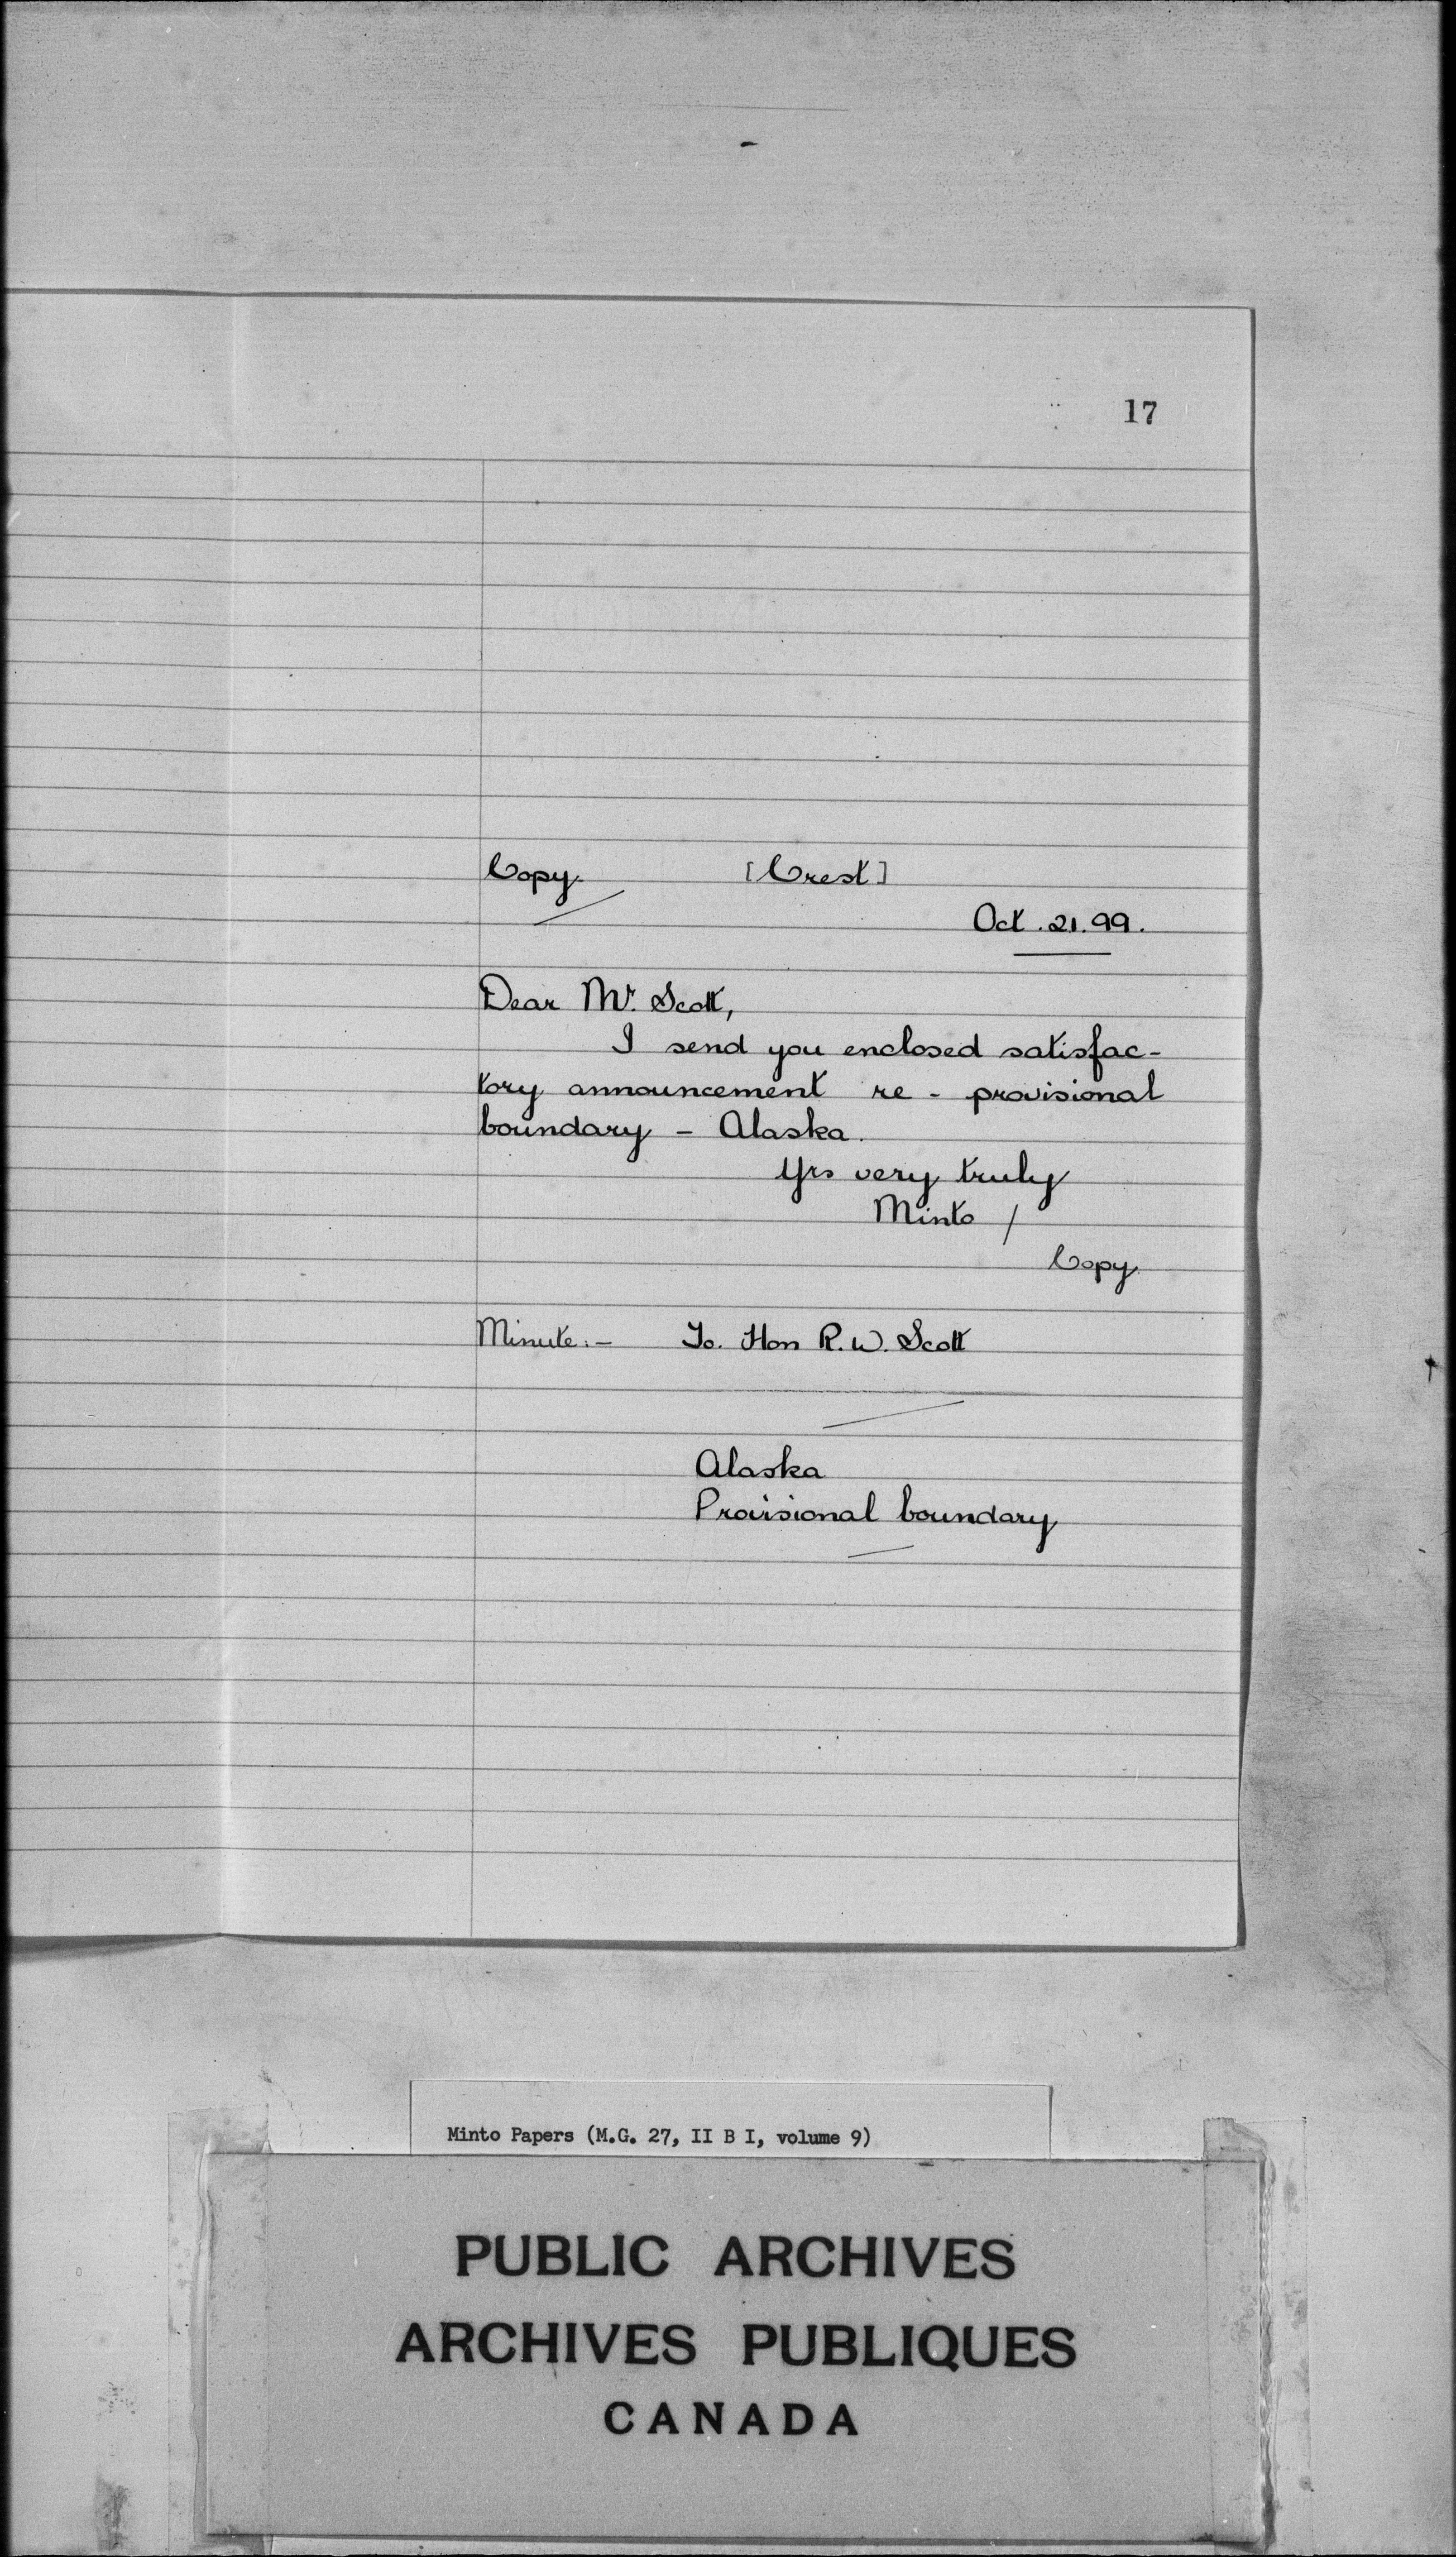 17
Copy. [Crest]
Oct. 21. 99.
Dear Mr. Scott,
I send you enclosed satisfac-
tory announcement re - provisional
boundary - Alaska.
Yrs very truly
Minto /
Copy.
Minute:- To. Hon R. W. Scott
Alaska
Provisional boundary
Minto Papers (M.G. 27, II B I, volume 9)
PUBLIC ARCHIVES
ARCHIVES PUBLIQUES
CANADA